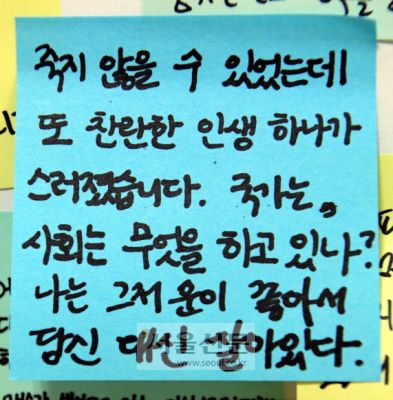 죽지 않을 수 있었는데
또 찬란한 인생 하나가
스러졌습니다. 국가는,
사회는 무엇을 하고 있나?
나는 그저 운이 좋아서
당신 대신 살아있다.
서울신문
www.seoul.co.kr